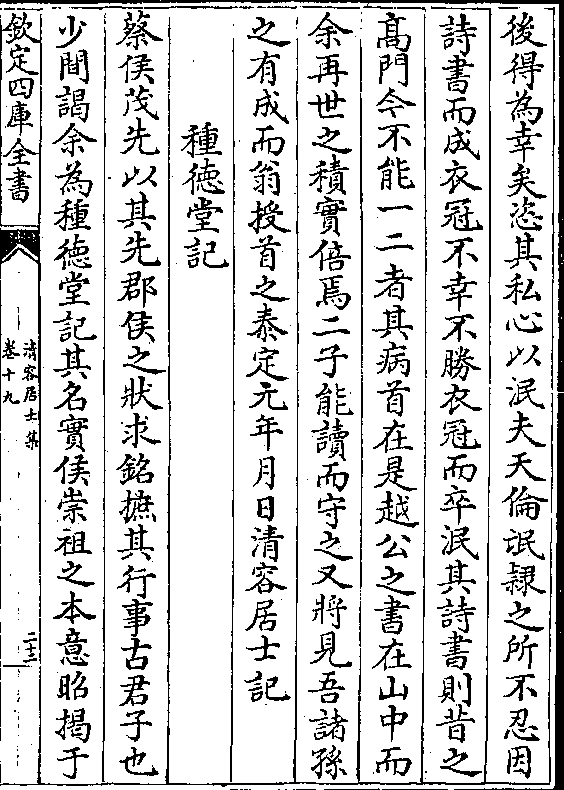 後得為幸矣恣其私心以泯夫天倫氓𨽻之所不忍因
詩書而成衣冠不幸不勝衣冠而卒泯其詩書則昔之
髙門今不能一二者其病首在是越公之書在山中而
余再世之積實倍焉二子能讀而守之又將見吾諸孫
之有成而翁授首之泰定元年月日清容居士記
種徳堂記
蔡侯茂先以其先郡侯之狀求銘摭其行事古君子也
少間謁余為種徳堂記其名實侯崇祖之本意昭掲于
欽定四庫全書
清容居士集
卷十九
二十三